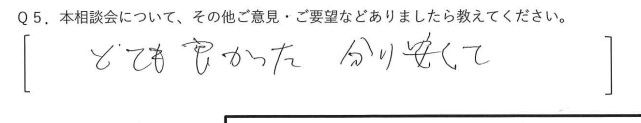 Q5．本相談会について、その他ご意見・ご要望などありましたら教えてください。
[ とても良かった 分り安くて ]